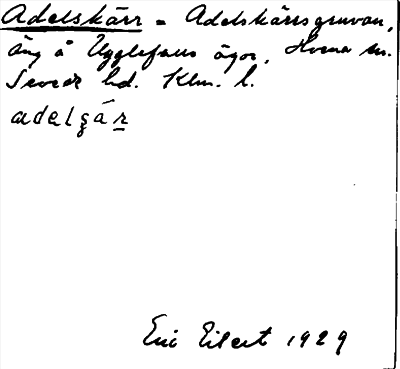 Adelskärr = Adelskärrsgruvan,
äng å Ugglefalls ägor, Hvena sn.
Sevede hd. Klm. l.
adelgár
Eric Eilert 1929